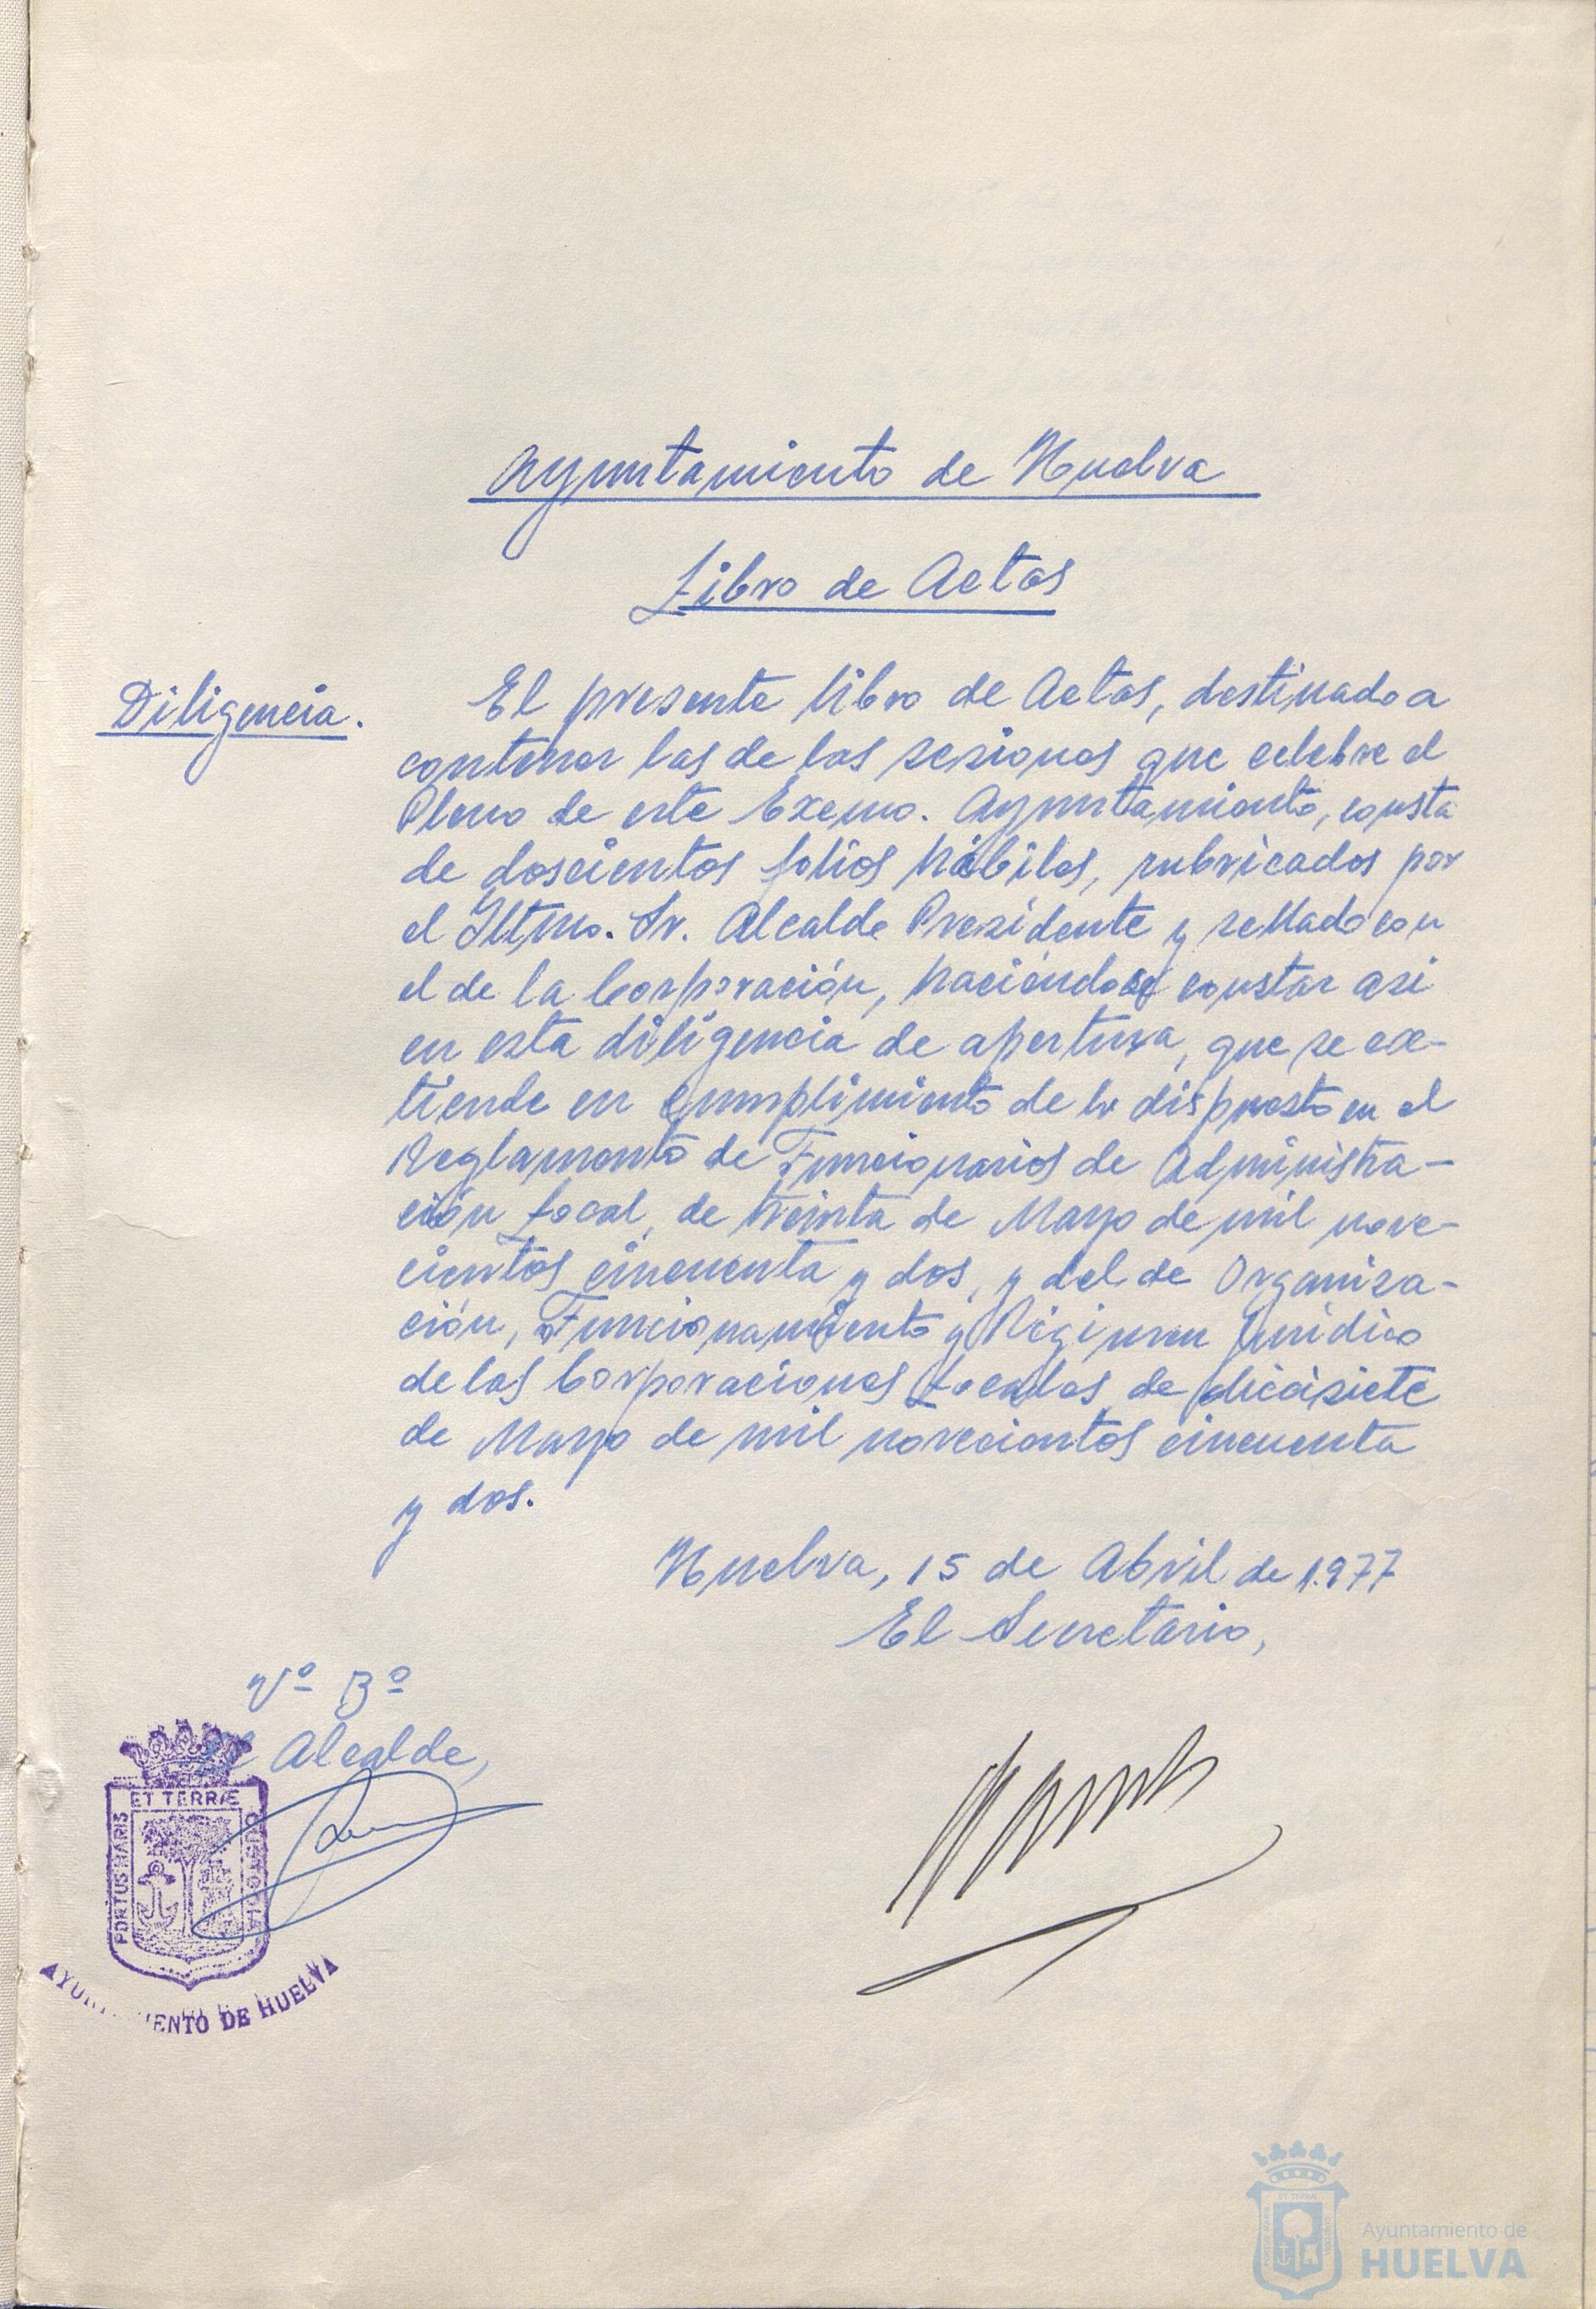 Ayuntamiento de Huelva
Libro de Actas
Diligencia.
El presente libro de Actas, destinado a
contener las de las sesiones que celebre el
Pleno de este Excmo. Ayuntamiento, consta
de doscientos folios hábiles, rubricados por
el Iltmo. Sr. Alcalde Presidente y sellado con
el de la Corporación, haciéndose constar asi
en esta diligencia de apertura, que se ex-
tiende en cumplimiento de lo dispuesto en el
Reglamento de Funcionarios de Administra-
ción Local, de treinta de Mayo de mil nove-
cientos cincuenta y dos, y del de Organiza-
ción, Funcionamiento y Régimen Jurídico
de las Corporaciones Locales, de diecisiete
de Mayo de mil novecientos cincuenta
y dos.
Huelva, 15 de Abril de 1.977
El Secretario,
Vº Bº
El Alcalde,
ET TERRÆ
PORTUS MARIS
CUSTODIA
AYUNTAMIENTO DE HUELVA
Ayuntamiento de
HUELVA